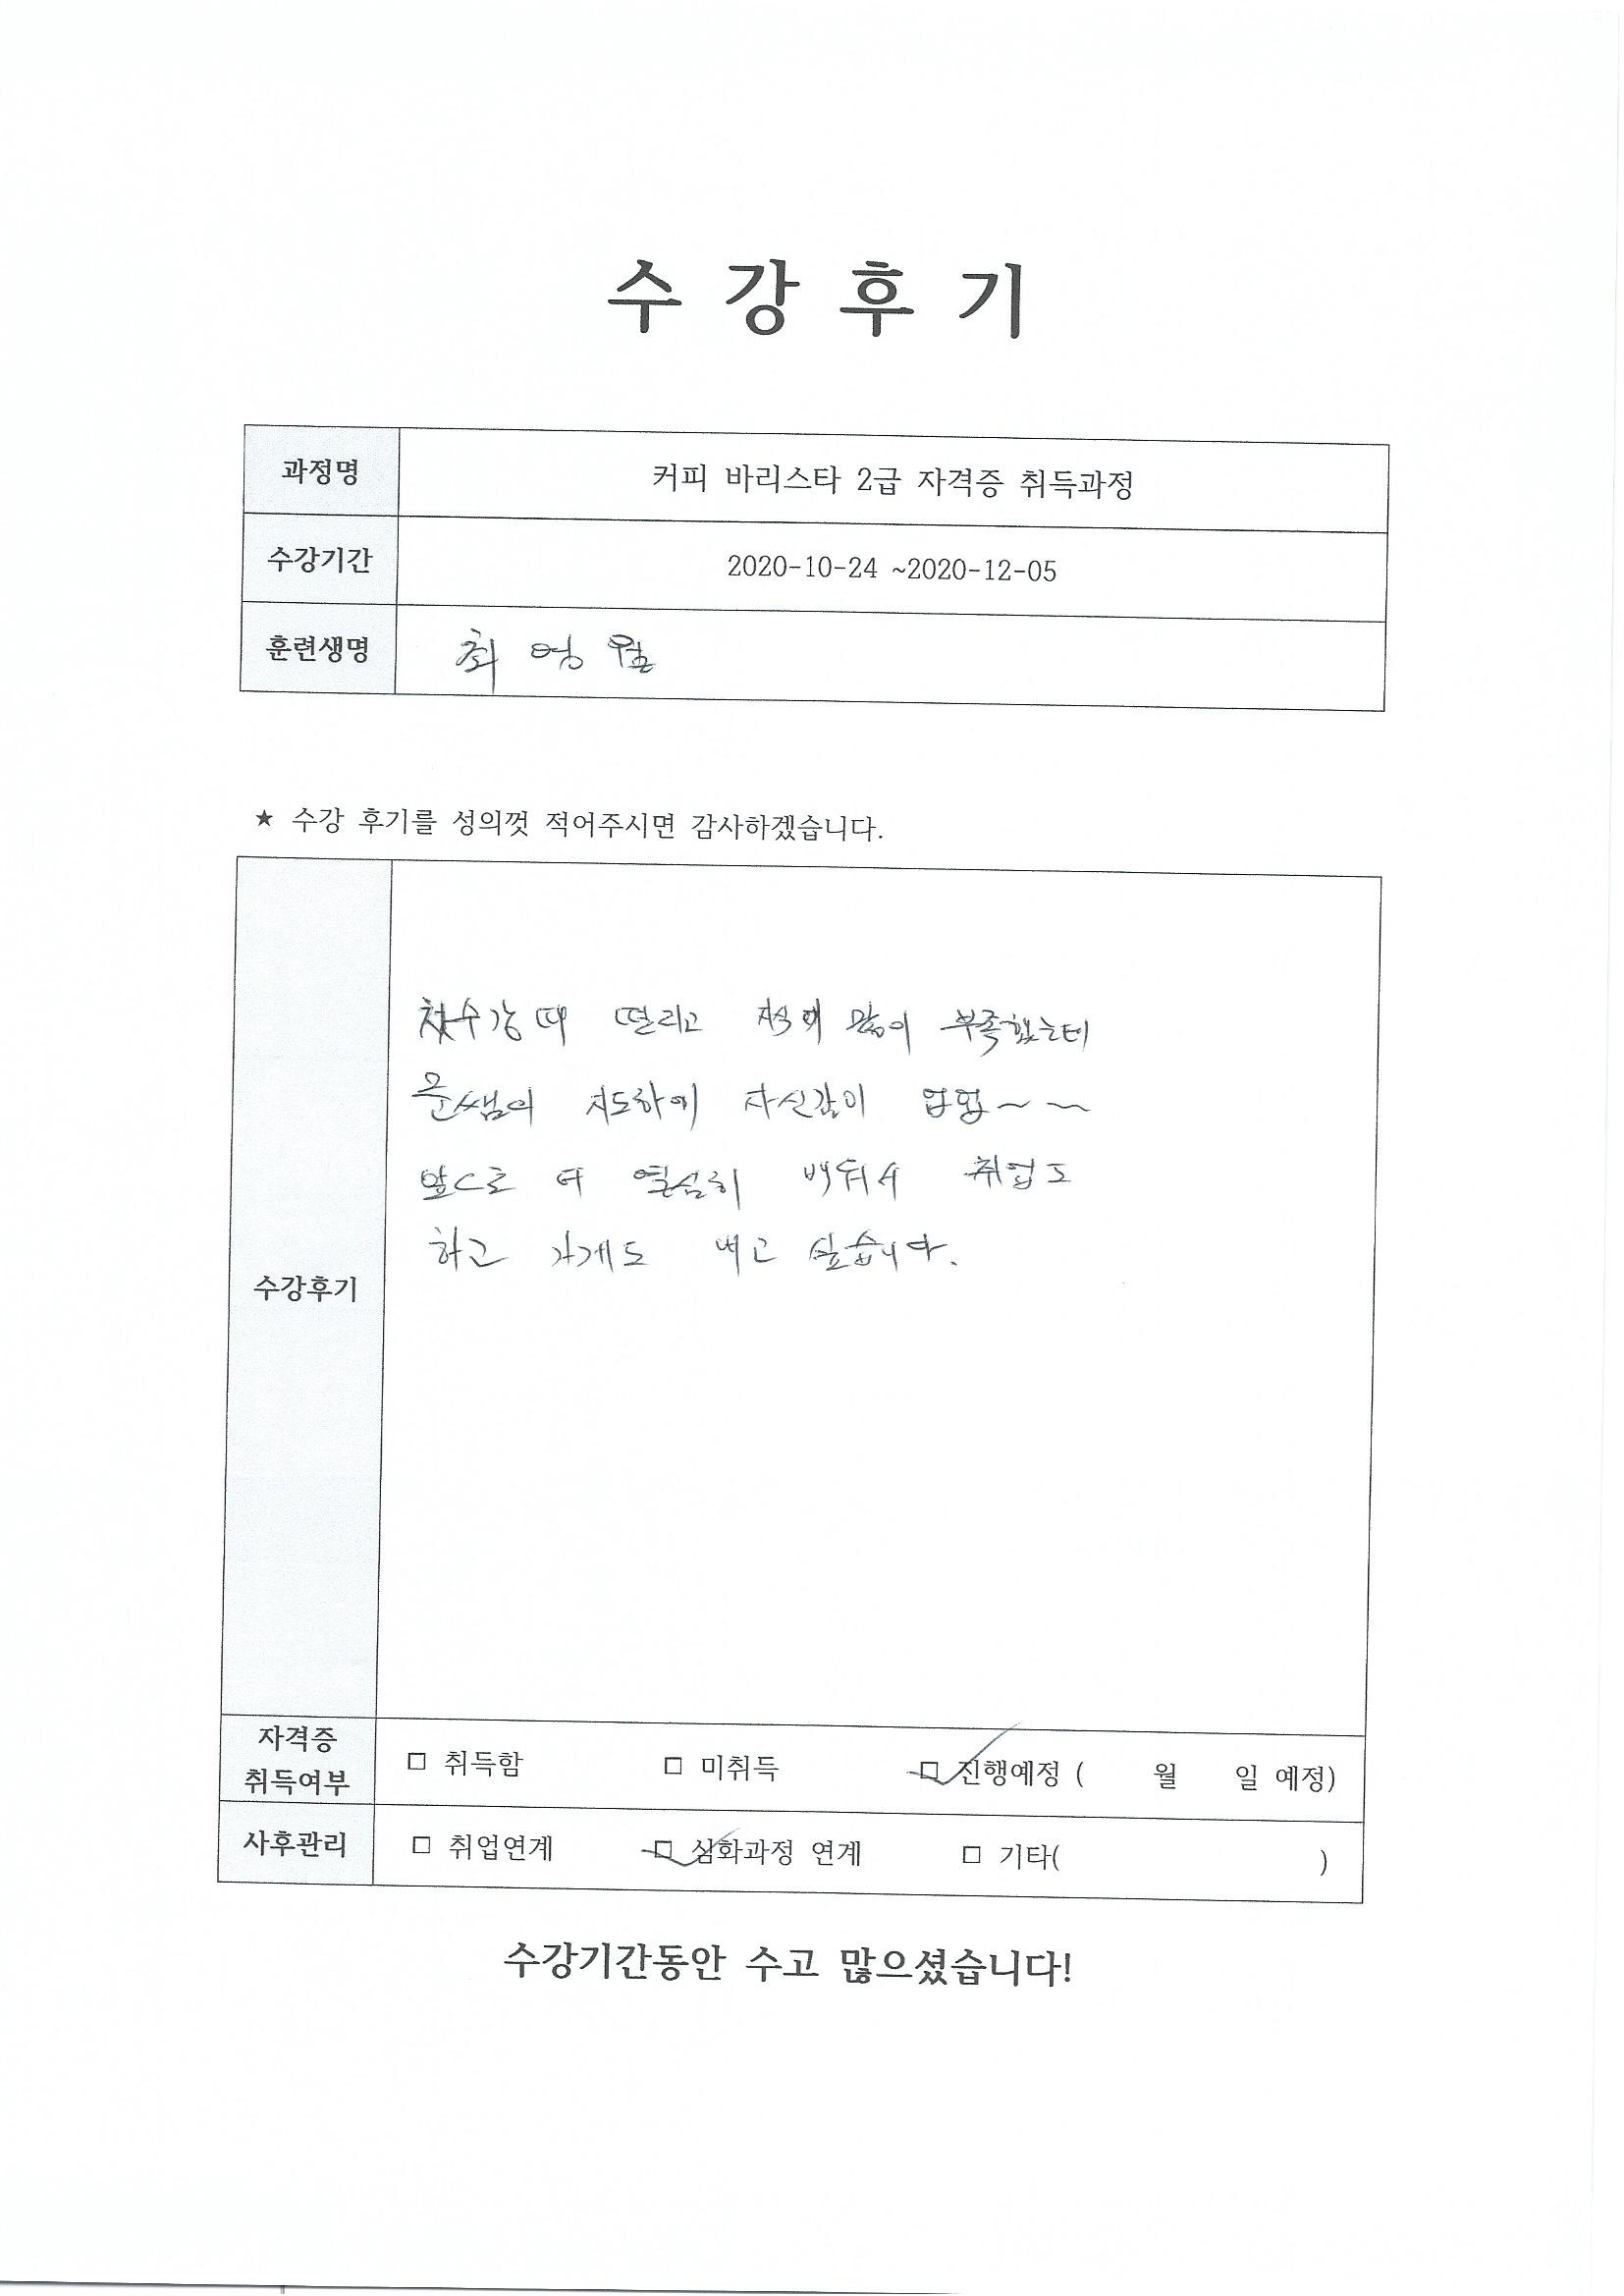 수 강 후 기
과정명 커피 바리스타 2급 자격증 취득과정
수강기간 2020-10-24 ~2020-12-05
훈련생명 최 영 월
★ 수강 후기를 성의껏 적어주시면 감사하겠습니다.
첫수강때 떨리고 많이 부족했는데
문쌤의 지도하에 자신감이 업업~~
앞으로 더 열심히 배워서 취업도
하고 가게도 내고 싶습니다.
수강후기
자격증
취득여부 □ 취득함 □ 미취득 □ 진행예정 ( 월 일 예정)
사후관리 □ 취업연계 □ 심화과정 연계 □ 기타( )
수강기간동안 수고 많으셨습니다!